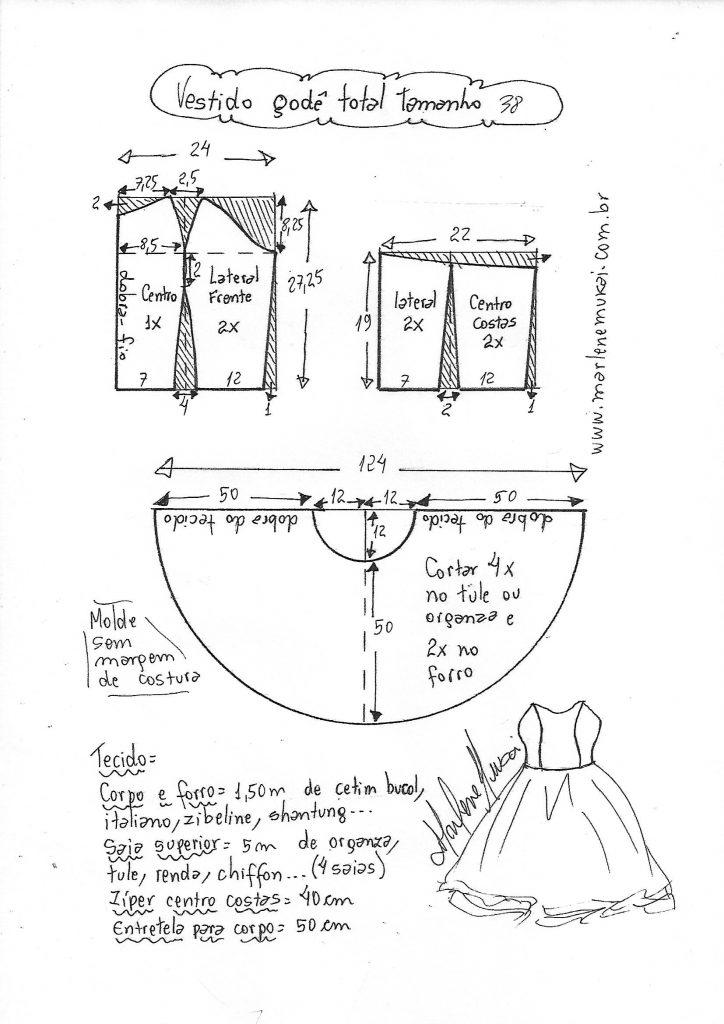 Vestido godê total Tamanho 38
24
7,25
2,5
2
8,25
8,5
2
27,25
dobra-fio
Centro
1x
Lateral
Frente
2x
7
4
12
1
22
19
lateral
2x
Centro
Costas
2x
7
2
12
1
www.marlenemukai.com.br
124
50
12
12
50
dobra do tecido
dobra do tecido
12
50
Cortar 4x
no tule ou
organza e
2x no
forro
Molde
sem
margem
de costura
Tecido=
Corpo e forro= 1,50m de cetim bucol,
italiano, zibeline, shantung...
Saia superior= 5m de organza,
tule, renda, chiffon... (4 saias)
Zíper centro costas= 40 cm
Entretela para corpo= 50 cm
Marlene Mukai